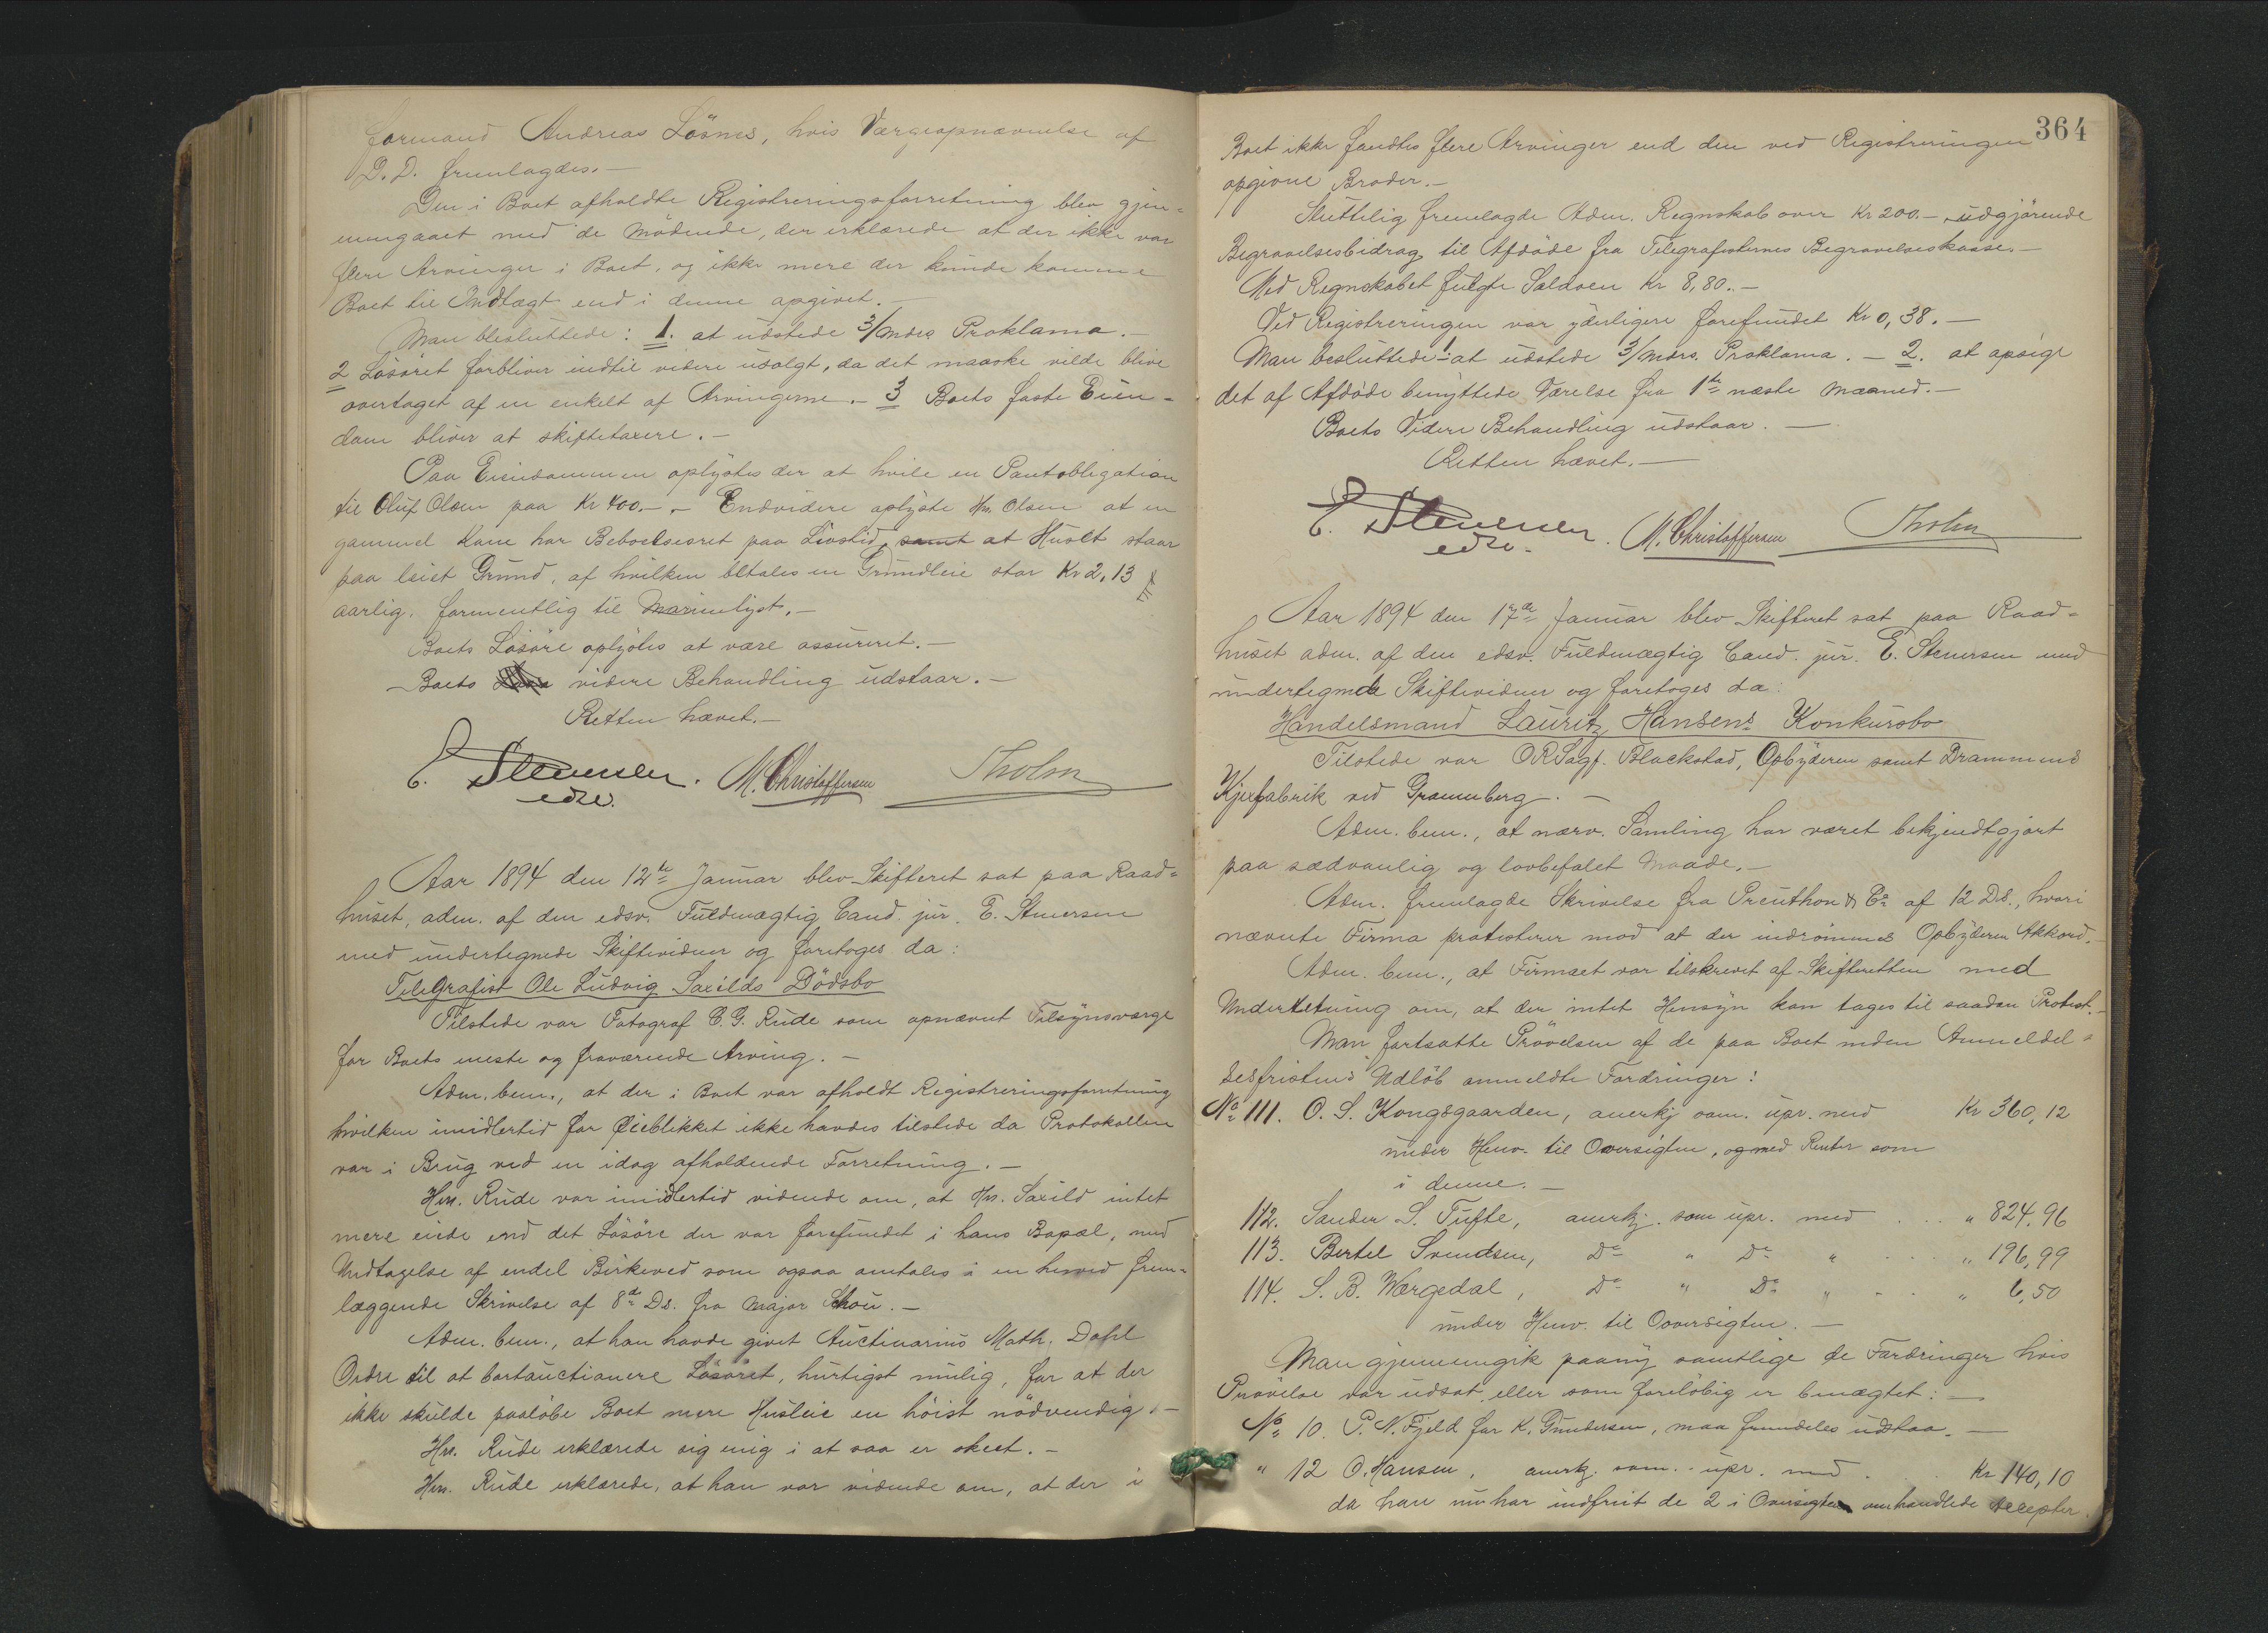 formand Andreas Lösnes, hvis Værgeopnævnelse af
D.D. fremlagdes.—
Den i Boet afholdte Registreringsforretning blev gjen=
nemgaaet med de Mödende, der erklærede at der ikke var
flere Arvinger i Boet, og ikke mere der kunde komme
Boet til Indtægt end i denne opgivet.—
Man besluttede: 1. at udstede 3/mdrs Proklama.—
2 Lösöret forbliver indtil videre usolgt, da det maaske vilde blive
overtaget af en enkelt af Arvingerne.— 3 Boets faste Eien-
dom bliver at skiftetaxere.—
Paa Eiendommen oplystes der at hvile en Pantobligation
til Oluf Olsen paa Kr 400.—.— Endvidere oplyste Hr. Olsen at en
gammel Kone har Beboelsesret paa Livstid, samt at Huset staar
paa leiet Grund, af hvilken betales en Grundleie stor Kr 2,13
aarlig, formentlig til Marienlyst.—
Boets Lösöre oplystes at være assureret.—
Boets videre Behandling udstaar.—
Retten hævet.—
E. Stenersen. M. Christoffersen Tholm
edsv.
Aar 1894 den 12te Januar blev Skifteret sat paa Raad=
huset, adm. af den edsv. Fuldmægtig Cand. jur. E. Stenersen
med undertegnede Skiftevidner og foretoges da:
Telegrafist Ole Ludvig Saxilds Dödsbo
Tilstede var Fotograf C. G. Rude som opnævnt Tilsynsværge
for Boets eneste og fraværende Arving.—
Adm. bem., at der i Boet var afholdt Registreringsforretning
hvilken imidlertid for Öieblikket ikke havdes tilstede da Protokollen
var i Brug ved en idag afholdende Forretning.—
Hr. Rude var imidlertid vidende om, at Hr. Saxild intet
mere eiede end det Lösöre der var forefundet i hans Bopæl, med
Undtagelse af endel Birkeved som ogsaa omtales i en herved frem=
læggende Skrivelse af 8de Ds. fra Major Schou.—
Adm. bem., at han havde givet Auctinarius Math. Dahl
Ordre til at bortauctionere Lösöret, hurtigst mulig, for at der
ikke skulde paalöbe Boet mere Husleie en höist nödvendig.—
Hr. Rude erklærede sig enig i at saa er skeet.—
Hr. Rude erklærede, at han var vidende om, at der i
364
Boet ikke fandtes flere Arvinger end den ved Registreringen
opgivne Broder.—
Sluttelig fremlagde Adm. Regnskab over Kr 200.— udgjörende
Begravelsesbidrag til Afdöde fra Telegrafisternes Begravelseskasse.—
Med Regnskabet fulgte Saldoen Kr 8,80.—
Ved Registreringen var yderligere forefundet Kr 0,38.—
Man besluttede 1. at udstede 3/mdrs. Proklama.— 2. at opsige
det af Afdöde benyttede Værelse fra 1ste næste Maaned.—
Boets Videre Behandling udstaar.—
Retten hævet.—
E. Stenersen. M. Christoffersen Tholm
edsv.
Aar 1894 den 17de Januar blev Skifteret sat paa Raad=
huset adm. af den edsv. Fuldmægtig Cand. jur. E. Stenersen med
undertegnede Skiftevidner og foretoges da:
Handelsmand Lauritz Hansens Konkursbo
Tilstede var O.R.Sagf. Blackstad, Opbyderen samt Drammens
Kjexfabrik ved Gramnberg.—
Adm. bem., at nærv. Samling har været bekjendtgjort
paa sædvanlig og lovbefalet Maade.—
Adm. fremlagde Skrivelse fra Preuthon & Co af 12 Ds., hvori
nævnte Firma protesterer mod at der indrömmes Opbyderen Akkord.—
Adm. bem., at Firmaet var tilskrevet af Skifteretten med
Underretning om, at der intet Hensyn kan tages til saadan Protest.—
Man fortsatte Prövelsen af de paa Boet inden Anmeldel=
sesfristens Udlöb anmeldte Fordringer:
No 111. O. S. Kongsgaarden, anerkj som. upr. med Kr 360,12
under Henv. til Oversigten, og med Renter som
i denne.—
112. Sander S. Tufte, anerkj. som upr. med . . . " 824,96
113. Bertel Svendsen, Do " Do " . . . " 196,99
114. S. B. Wærgedal, Do " Do " . . . " 6,50
under Henv. til Oversigten.—
Man gjennemgik paany samtlige de Fordringer hvis
Prövelse var udsat, eller som foreløbig er benægtet:—
No 10. P. N. Fjeld for K. Gundersen, maa fremdeles udstaa.—
" 12 O. Hansen, anerkj. som. upr. med . . . Kr 140,10
da han nu har indfriet de 2 i Oversigten omhandlede Accepter.